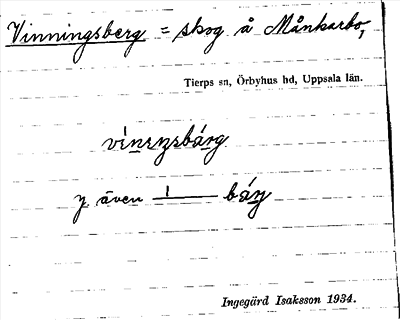 Vinningsberg = skog å Månkarbo,
Tierps sn, Örbyhus hd, Uppsala län.
även báŋ
Ingegärd Isaksson 1934.